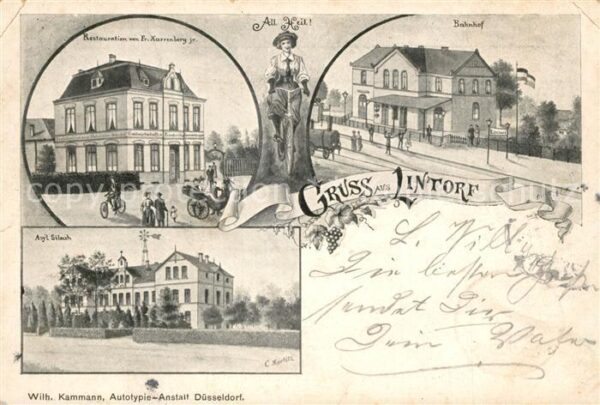 All Heil!
Restauration von Fr. Karrenberg jr.
Bahnhof
GRUSS AUS LINTORF
Asyl Siloah
L. Willy
Die besten Grüße
sendet Dir
Dein Vater
Wilh. Kammann, Autotypie-Anstalt Düsseldorf.